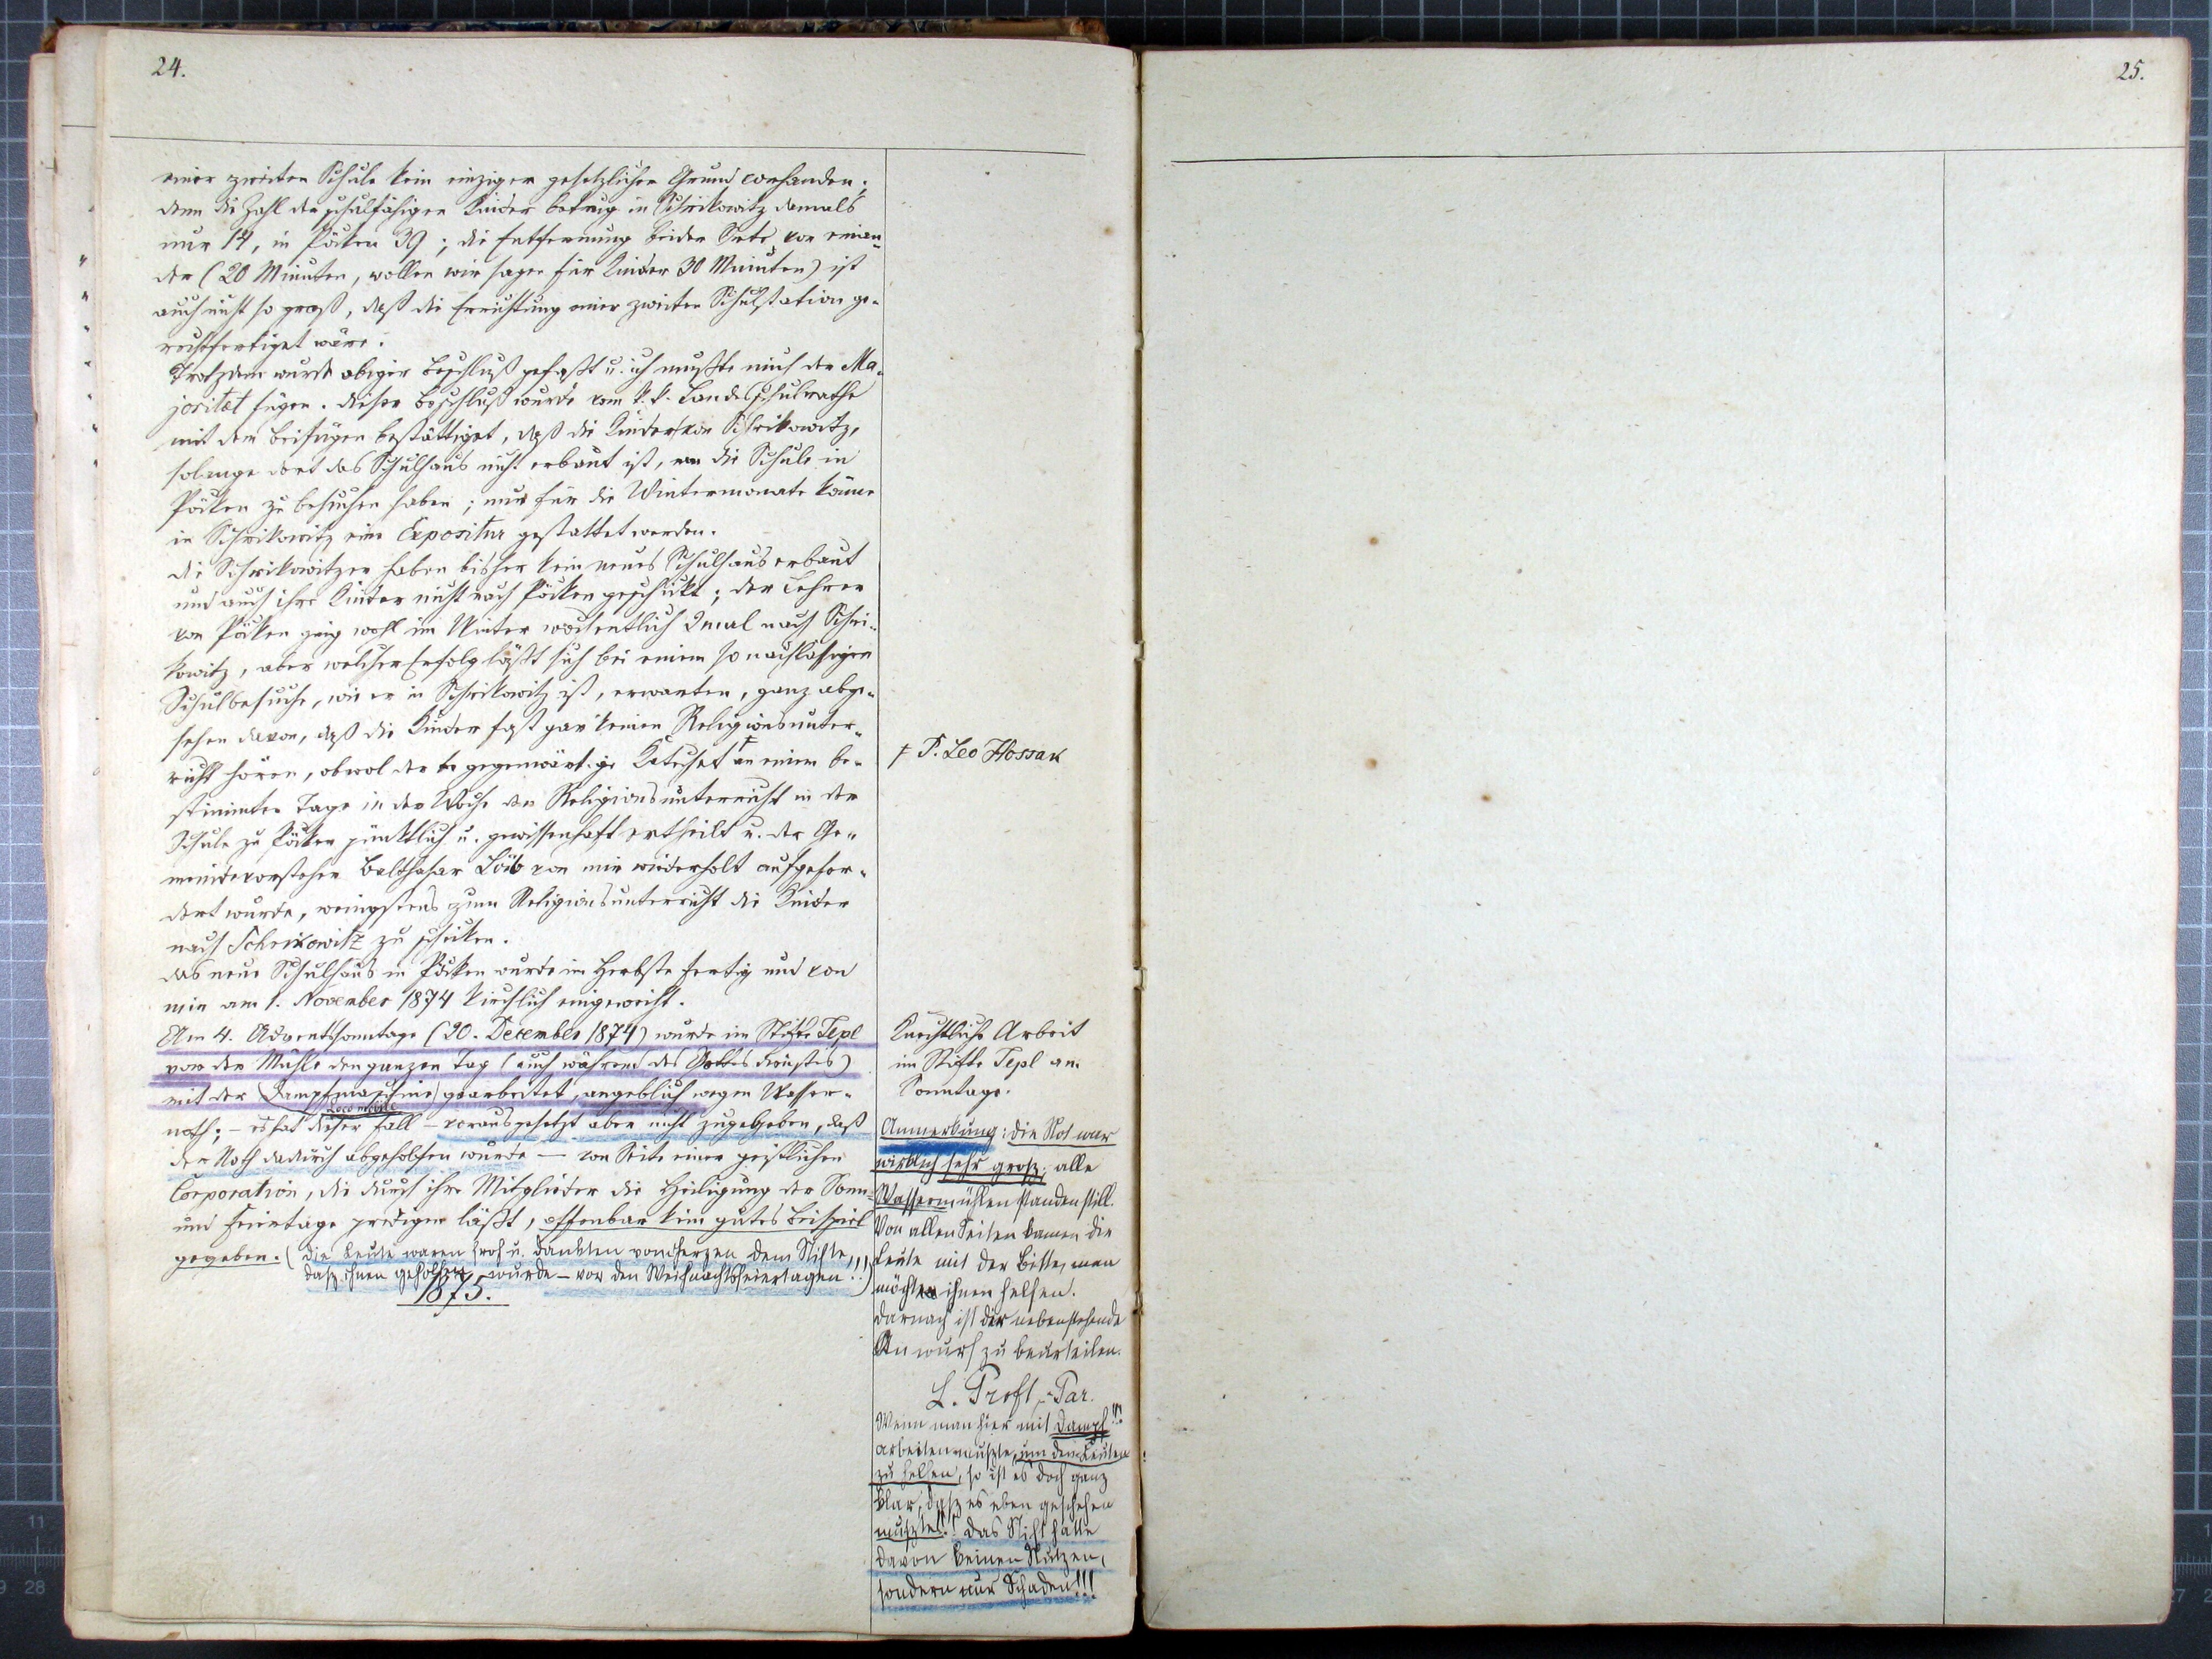 24.
einer zweiten Schule kein einziger gesetzlicher Grund vorhanden;
denn die Zahl der schulfähigen Kinder betrug in Schrikowitz damals
nur 14, in Pöken 39; die Entfernung beider Orte von einan-
der (20 Minuten, wollen wir sagen für Kinder 30 Minuten) ist
auch nicht so groß, daß die Errichtung einer zweiten Schulstation ge-
rechtfertiget wäre.
Trotzdem wurde obiger Beschluß gefaßt u. ich mußte mich der Ma-
jorität fügen. Dieser Beschluß wurde vom k. k. Landesschulrathe
mit dem Beifügen bestättiget, daß die Kinder von Schrikowitz,
solange dort das Schulhaus nicht erbaut ist, die Schule in
Pöken zu besuchen haben; nur für die Wintermonate könne
in Schrikowitz eine Expositur gestattet werden.
Die Schrikowitzer haben bisher kein neues Schulhaus erbaut
und auch ihre Kinder nicht nach Pöken geschickt; der Lehrer
von Pöken ging wohl im Winter wöchentlich 2mal nach Schri-
kowitz, aber welcher Erfolg läßt sich bei einem so nachlässigen
Schulbesuche, wie er in Schrikowitz ist, erwarten, ganz abge-
sehen davon, daß die Kinder fast gar keinen Religionsunter-
richt hören, obwol der gegenwärtige Katechet ⨍ an einem be-
stimmten Tage in der Woche den Religionsunterricht in der
Schule zu Pöken pünktlich u. gewissenhaft ertheilt u. der Ge-
meindevorsteher Balthasar Löw von mir wiederholt aufgefor-
dert wurde, wenigstens zum Religionsunterricht die Kinder
nach Schrikowitz zu schicken.
Das neue Schulhaus in Pöken wurde im Herbste fertig und von
mir am 1. November 1874 kirchlich eingeweiht.
Am 4. Adventsonntage (20. December 1874) wurde im Stifte Tepl
vor der Mühle den ganzen Tag (auch während des Gottesdienstes)
mit der Dampfmaschine gearbeitet, angeblich wegen Wasser-
Locomobile
noth; – es hat dieser Fall – vorausgesetzt aber nicht zugegeben, daß
der Noth dadurch abgeholfen wurde — von Seite einer geistlichen
Corporation, die durch ihre Mitglieder die Heiligung der Sonn-
und Feiertage predigen läßt, offenbar kein gutes Beispiel
gegeben. (Die Leute waren froh u. dankten von Herzen dem Stifte,
dasz ihnen geholfen wurde – vor den Weihnachtsfeiertagen!!!)
1875.
⨍ P. Leo Hossak
Knechtliche Arbeit
im Stifte Tepl an
Sonntage.
Anmerkung: Die Not war
wirklich sehr grosz; alle
Wassermühlen standen still.
Von allen Seiten kamen die
Leute mit der Bitte, man
möchte ihnen helfen.
Darnach ist der nebenstehende
Anwurf zu beurteilen.
L. Proft, Par.
Wenn man hier mit Dampf!!!
arbeiten muszte, um den Leuten
zu helfen, so ist es doch ganz
klar, dasz es eben geschehen
muszte!! Das Stift hatte
davon keinen Nutzen,
sondern nur Schaden!!!
25.